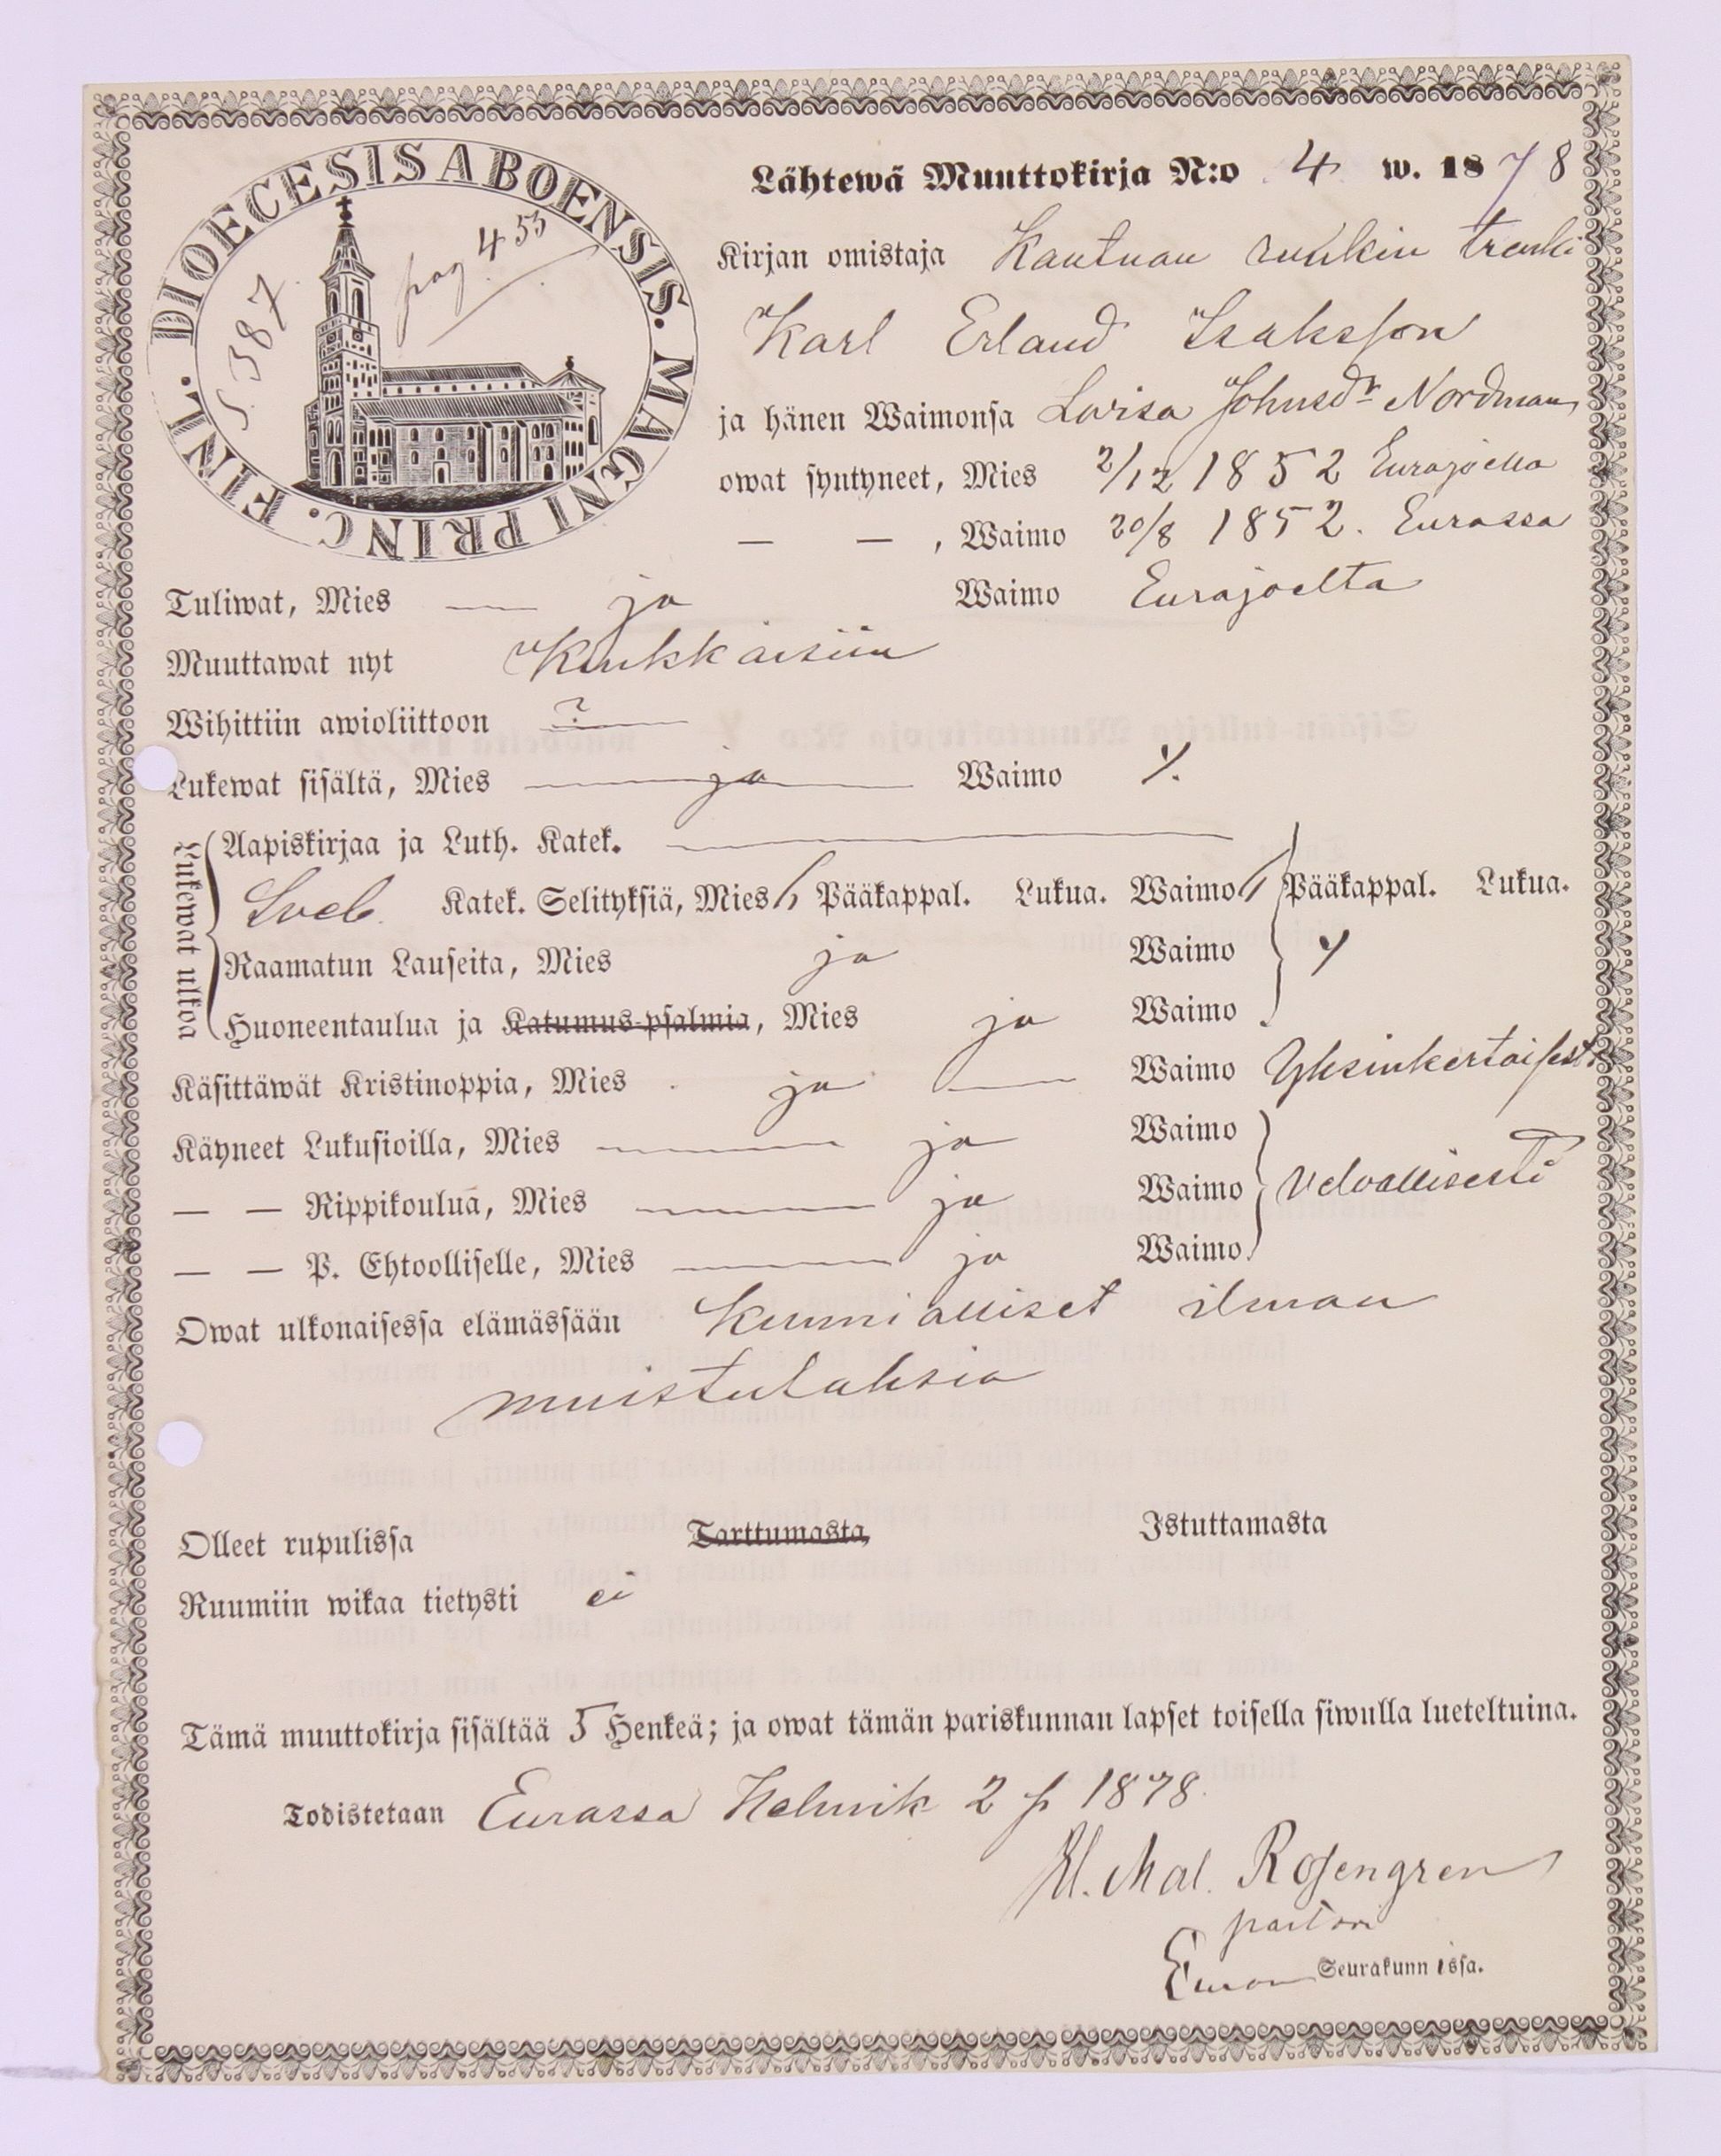 DIOECESIS ABOENSIS. MAGNI PRINC. FINL.
S. 387.
pag. 453
Lähtewä Muuttokirja N:o 4 w. 1878
Kirjan omistaja Kautuan ruukin trenki
Karl Erland Isaksson
ja hänen Waimonsa Lovisa Johnsdr Nordman
owat syntyneet, Mies 2/12 1852 Eurajoella
— — , Waimo 20/8 1852. Eurassa
Tuliwat, Mies — ja Waimo Eurajoelta
Muuttawat nyt Kiukkaisiin
Wihittiin awioliittoon ?
Lukewat sisältä, Mies ja Waimo y.
Lukewat ulkoa
Aapiskirjaa ja Luth. Katek.
Sveb. Katek. Selityksiä, Mies Pääkappal. Lukua. Waimo Pääkappal. Lukua.
Raamatun Lauseita, Mies ja Waimo y
Huoneentaulua ja Katumus-psalmia, Mies ja Waimo
Käsittäwät Kristinoppia, Mies ja Waimo Yksinkertaisesti
Käyneet Lukusioilla, Mies ja Waimo
— — Rippikoulua, Mies ja Waimo velvallisesti
— — P. Ehtoolliselle, Mies ja Waimo
Owat ulkonaisessa elämässään kunnialliset ilman
muistutuksia
Olleet rupulissa Tarttumasta, Istuttamasta
Ruumiin wikaa tietysti ei
Tämä muuttokirja sisältää 5 Henkeä; ja owat tämän pariskunnan lapset toisella siwulla lueteltuina.
Todistetaan Eurassa Helmik 2 p 1878.
Mal. Rosengren
pastori
Euran Seurakunnissa.